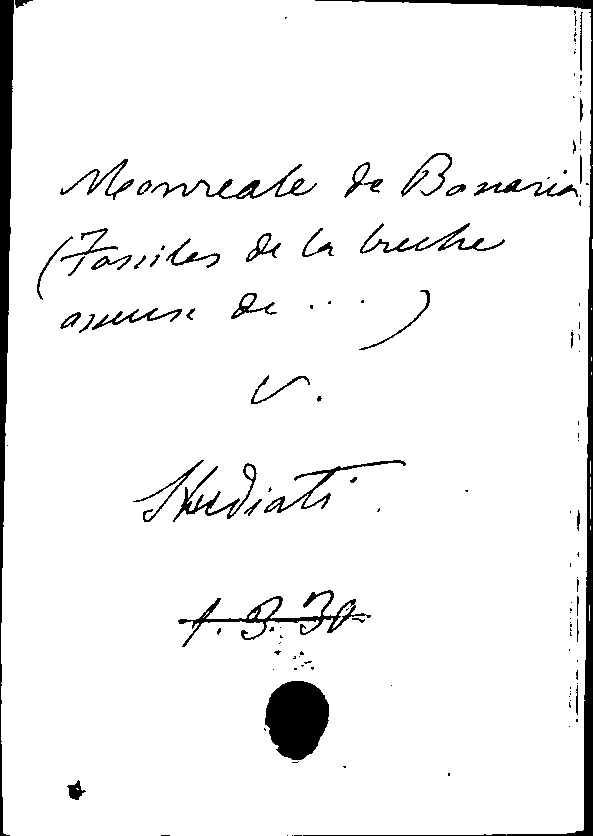 Monreale de Bonaria
(Fossiles de la breche
osseuse de ... )
v.
Studiati
1. 3. 30